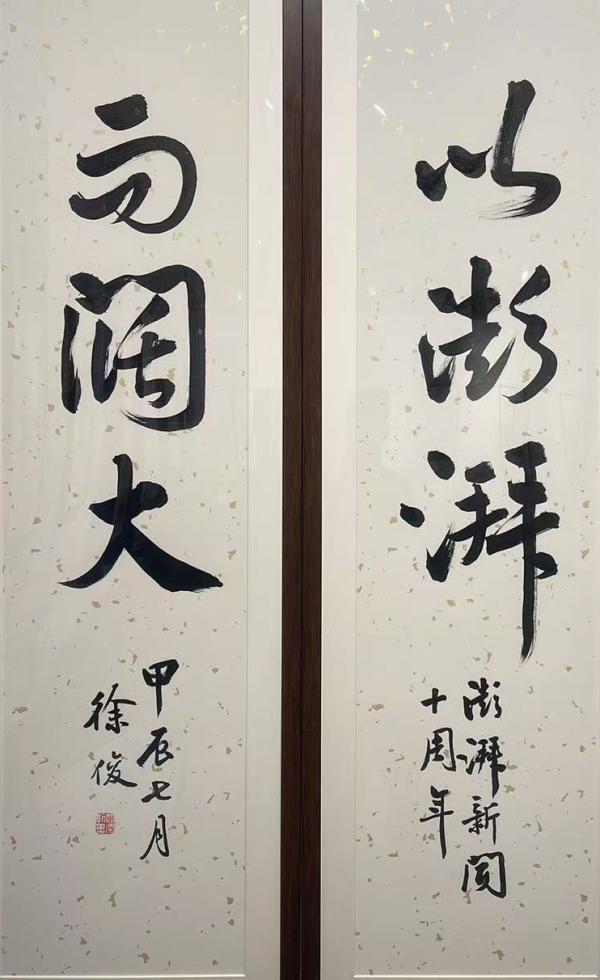 以澎湃
澎湃新闻
十周年
而阔大
甲辰七月
徐俊